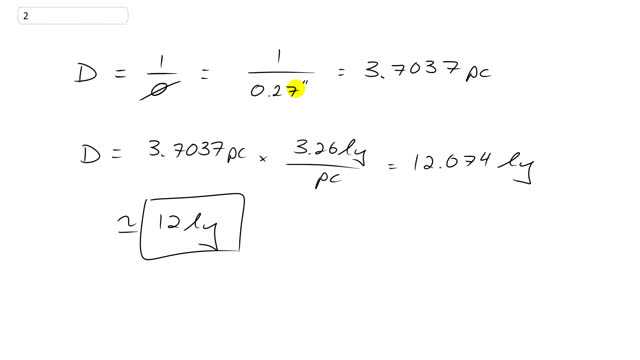 2
D = 1/φ = 1/0.27" = 3.7037 pc
D = 3.7037 pc × 3.26 ly/pc = 12.074 ly
≃ 12 ly